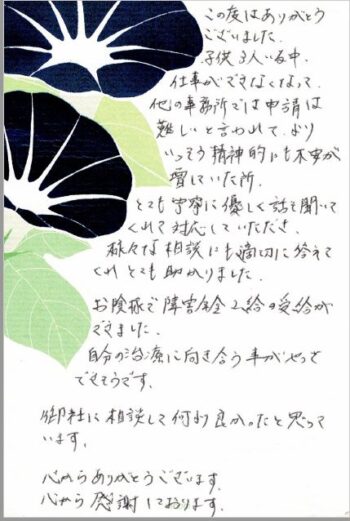 この度はありがとう
ございました.
子供3人いる中.
仕事ができなくなって.
他の事務所では申請は
難しいと言われて.より
いっそう精神的にも不安が
響していた所.
とても丁寧に優しく話を聞いて
くれて対応していただき.
様々な相談にも適切に答えて
くれとても助かりました.
お陰様で障害年金2級の受給が
できました.
自分の治療に向き合う事がやっと
できそうです.
御社に相談して何より良かったと思って
います.
心からありがとうございます.
心から感謝しております.